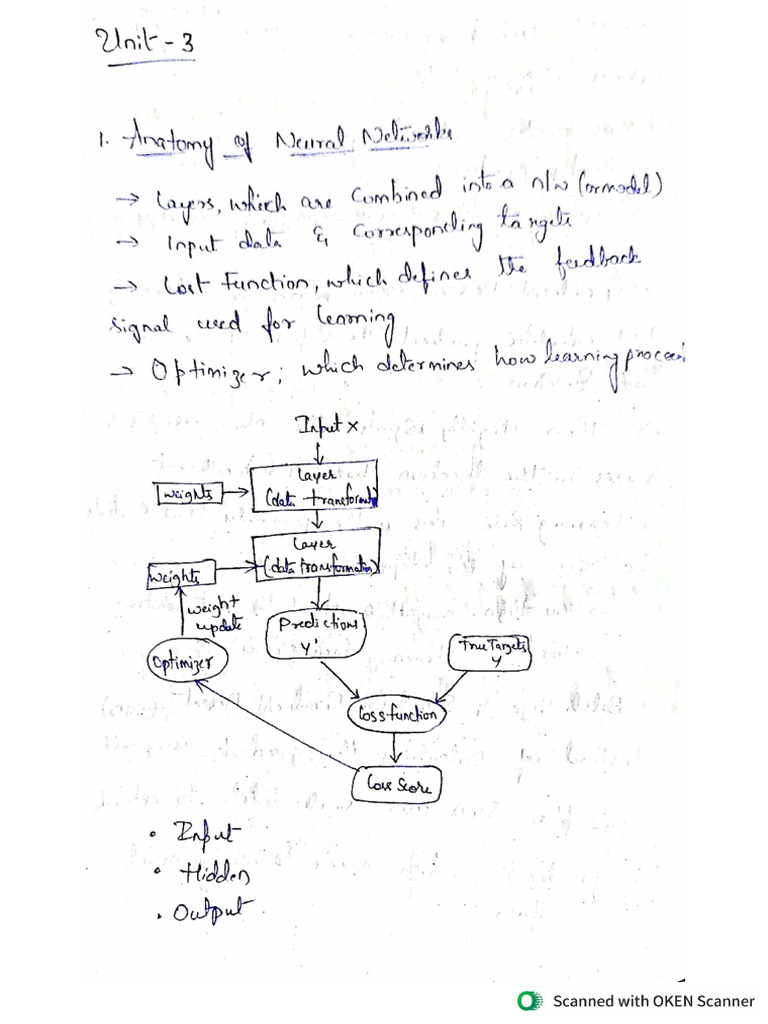 Unit - 3
1. Anatomy of Neural Networks
→ Layers, which are combined into a n/w (or model)
→ Input data & corresponding targets
→ Loss Function, which defines the feedback
signal used for learning
→ Optimizer; which determines how learning proceed
Input x
Layer
weights
(data transformation)
Layer
(data transformation)
weights
weight
update
Predictions
Y'
True Targets
Y
Optimizer
Loss function
Loss Score
• Input
• Hidden
• Output
Scanned with OKEN Scanner